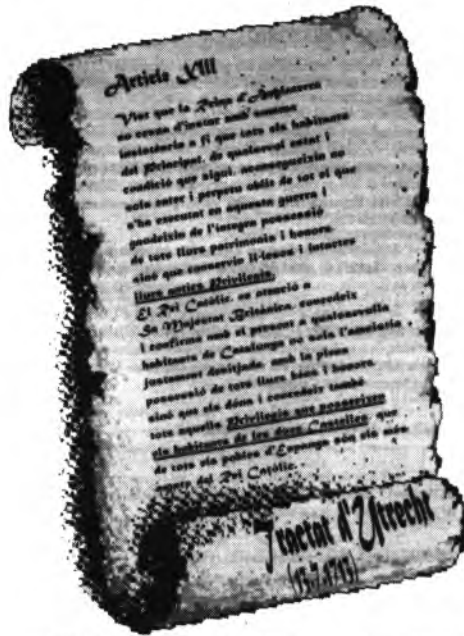 Article XIII
Vist que la Reina d'Anglaterra
no cessa d'instar amb suma
insistència a fi que tots els habitants
del Principat, de qualsevol estat i
condició que sigui, aconsegueixin no
sols enter i perpetu oblit de tot el que
s'ha executat en aquesta guerra i
gaudeixin de l'íntegra possessió
de tots llurs patrimonis i honors,
sinó que conservin il·lesos i intactes
llurs antics Privilegis,
El Rei Catòlic, en atenció a
Sa Majestat Britànica, concedeix
i confirma amb el present a qualssevulla
habitants de Catalunya no sols l'amnistia
justament desitjada, amb la plena
possessió de tots llurs béns i honors,
sinó que els dóna i concedeix també
tots aquells Privilegis que posseeixen
els habitants de les dues Castelles que
de tots els pobles d'Espanya són els més
del Rei Catòlic.
Tractat d'Utrecht
(13.7.1713)